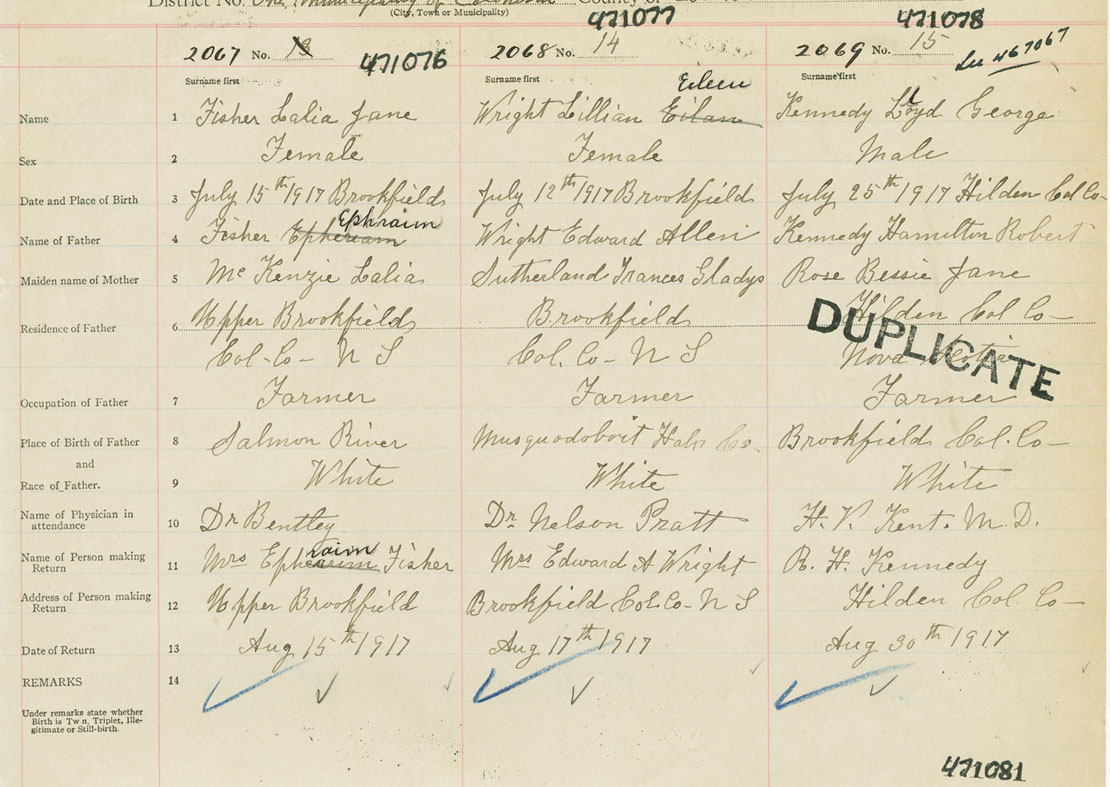 District No. One Municipality of Colchester County of
(City, Town or Municipality)
471077 471078
2067 No. 13 471076 2068 No. 14 2069 No. 15 See 467067
Surname first Surname first Surname first
Eileen
Name 1 Fisher Lalia Jane Wright Lillian Eilane Kennedy Lloyd George
Sex 2 Female Female Male
Date and Place of Birth 3 July 15th 1917 Brookfields July 12th 1917 Brookfields July 25th 1917 Hilden Col Co-
Ephraim
Name of Father 4 Fisher Epheriam Wright Edward Allen Kennedy Hamilton Robert
Maiden name of Mother 5 Mc Kenzie Lalia Sutherland Frances Gladys Rose Bessie Jane
Residence of Father 6 Upper Brookfields Brookfields Hilden Col Co-
Col-Co- N S Col. Co- N S Nova Scotia
DUPLICATE
Occupation of Father 7 Farmer Farmer Farmer
Place of Birth of Father 8 Salmon River Musquodoboit Halx Co. Brookfields Col. Co-
and
Race of Father. 9 White White White
Name of Physician in attendance 10 Dr Bentley Dr Nelson Pratt H. V. Kent. M. D.
raim
Name of Person making Return 11 Mrs Ephearium Fisher Mrs Edward A Wright R. H. Kennedy
Address of Person making Return 12 Upper Brookfield Brookfield Col. Co- N S Hilden Col. Co-
Date of Return 13 Aug 15th 1917 Aug 17th 1917 Aug 30th 1917
REMARKS 14
Under remarks state whether
Birth is Twin, Triplet, Ille-
gitimate or Still-birth.
471081